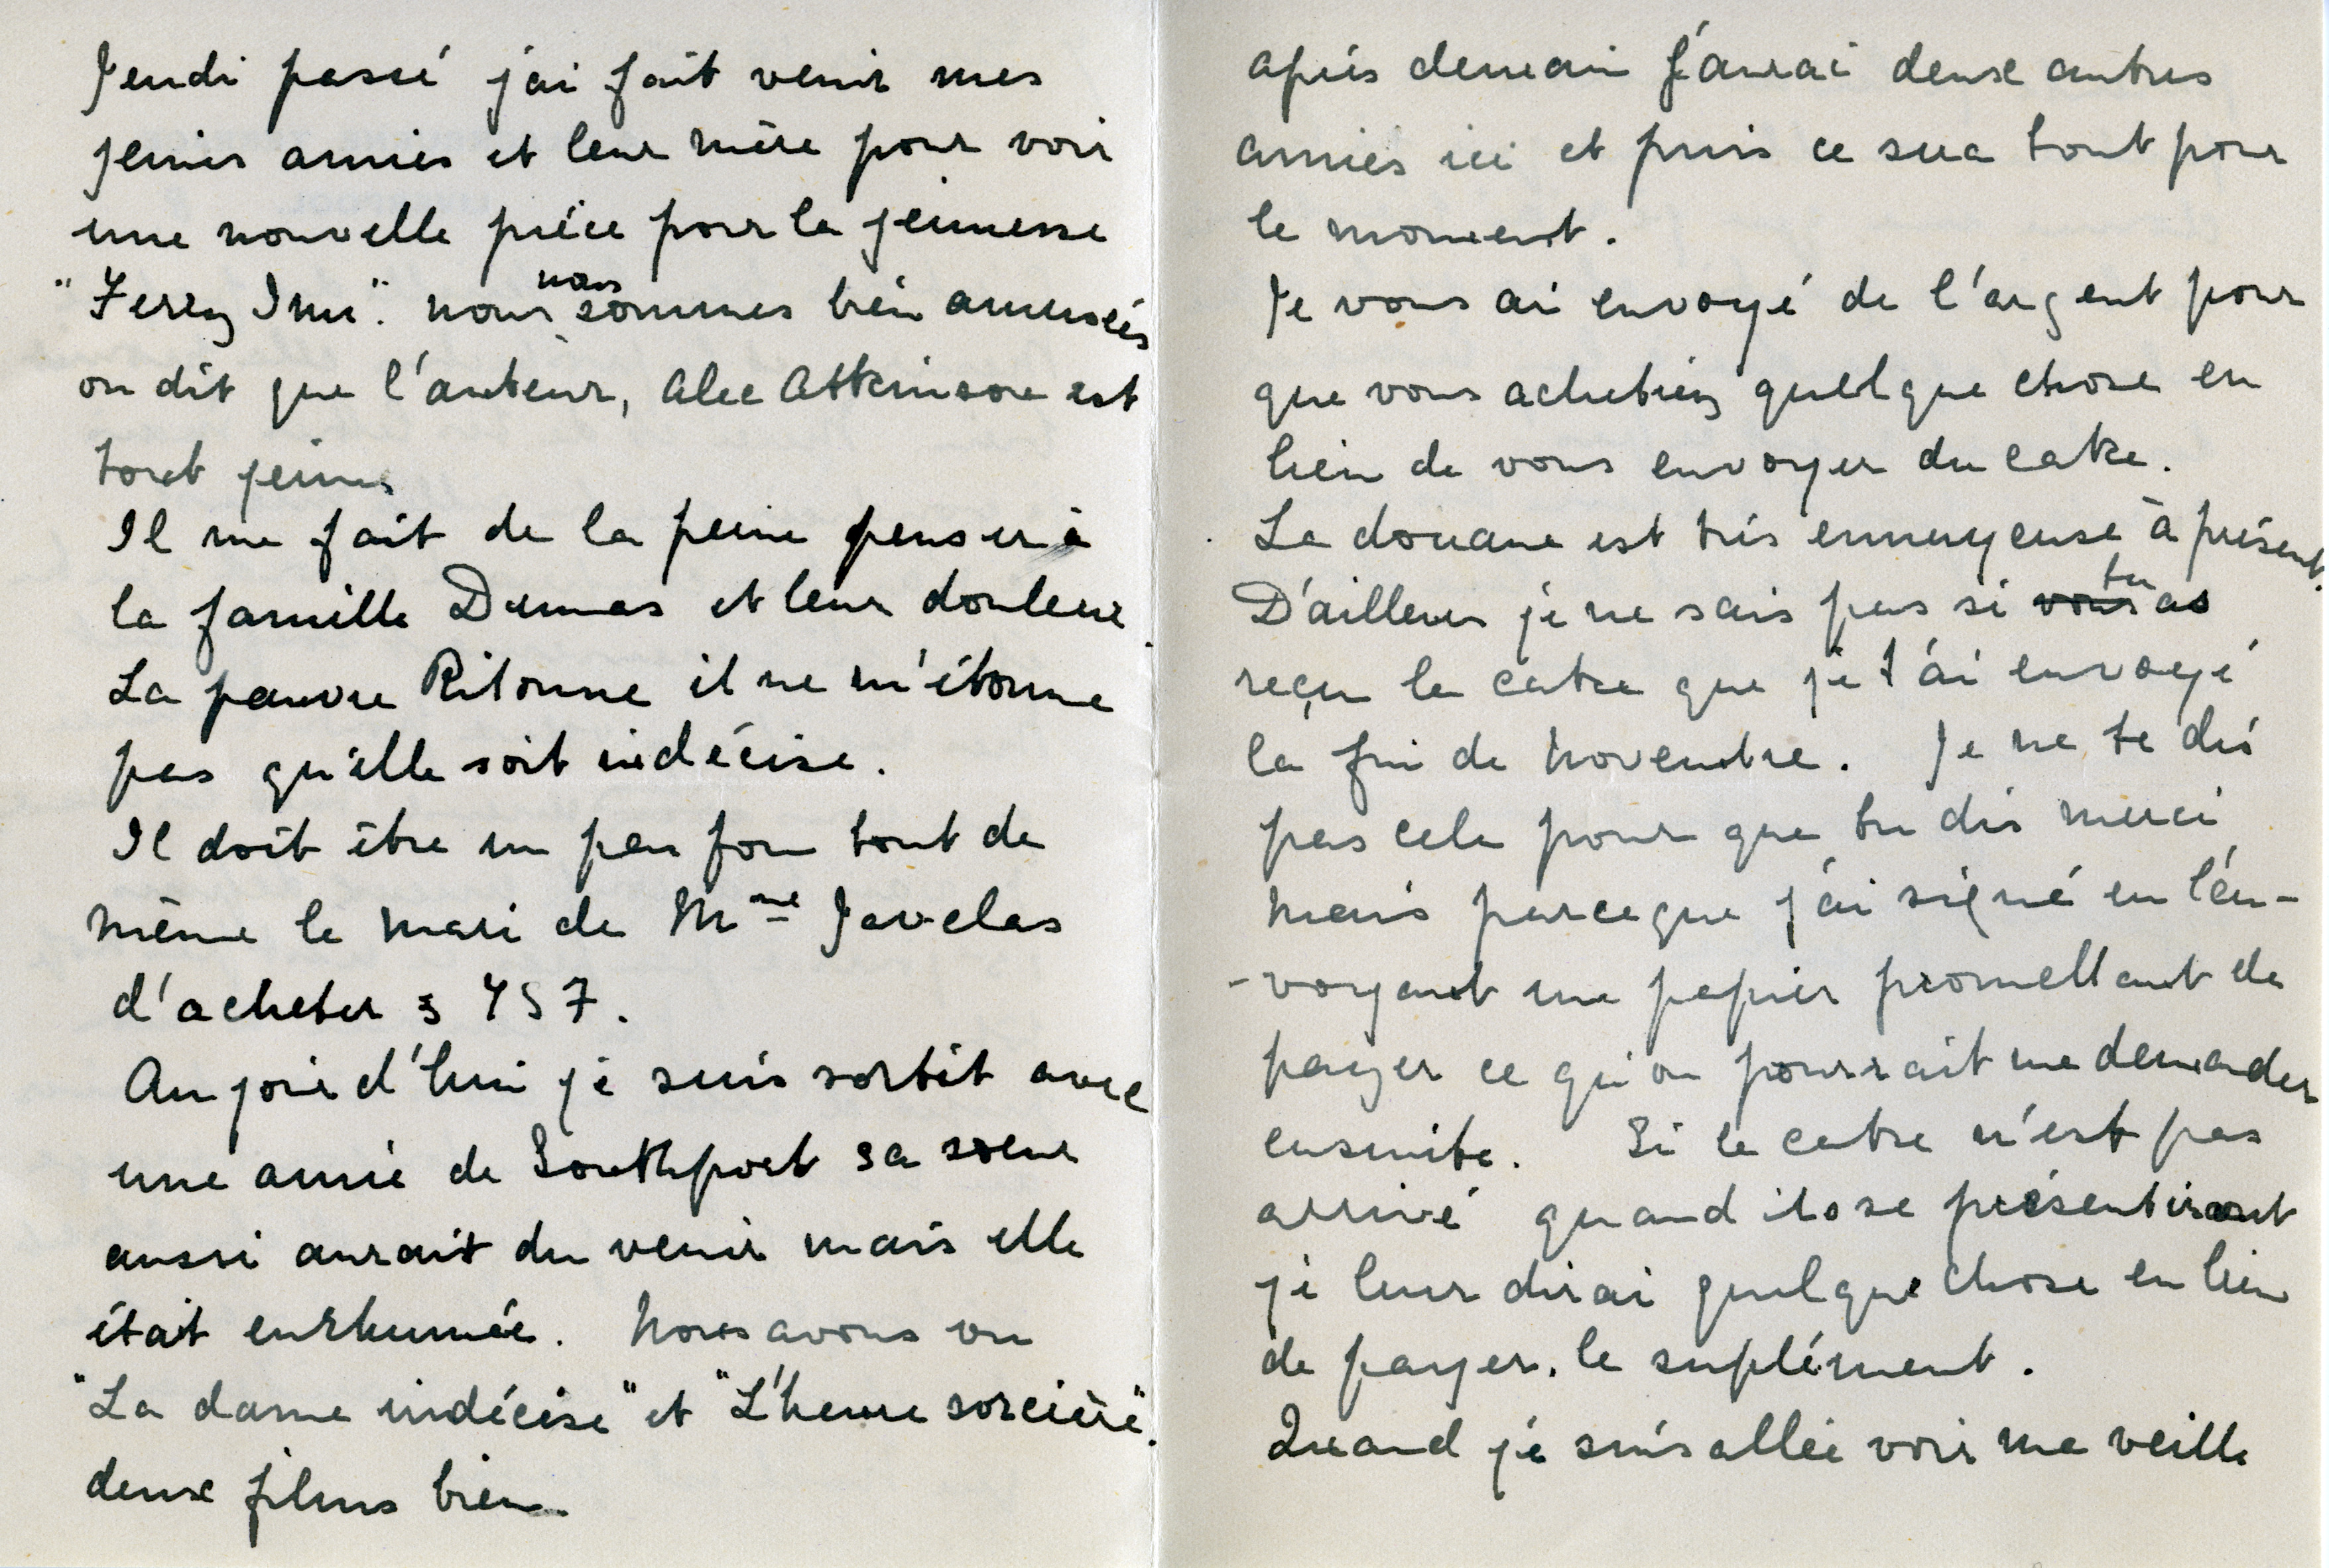 Jeudi passé j'ai fait venir mes
jeunes amies et leur mère pour voir
une nouvelle pièce pour la jeunesse
"Ferry Inn". nous nous sommes bien amusées
on dit que l'auteur, Alec Atkinson est
tout jeune
Il me fait de la peine penser à
la famille Dumas et leur douleur.
La pauvre Ritonne il ne m'étonne
pas qu'elle soit indécise.
Il doit être un peu fou tout de
même le mari de Mme Javelas
d'acheter 3 457.
Au jour d'hui je suis sortit avec
une amie de Southport sa soeur
aussi aurait du venir mais elle
était enrhumée. Nous avons vu
"La dame indécise" et "L'heure sorcière".
deux films bien
après demain j'aurai deux autres
amies ici et puis ce sera tout pour
le moment.
Je vous ai envoyé de l'argent pour
que vous achetiez quelque chose en
lieu de vous envoyer du cake.
La douane est très ennuyeuse à présent.
D'ailleurs je ne sais pas si vous tu as
reçu le cake que je t'ai envoyé
la fin de Novembre. Je ne te dis
pas cela pour que tu dis merci
mais parceque j'ai signé en l'en-
-voyant une papier promettant de
payer ce qu'on pourrait me demander
ensuite. Si le cake n'est pas
arrivé quand ils se présenteront
je leur dirai quelque chose en lieu
de payer le suplément.
Quand je suis allée voir ma veille